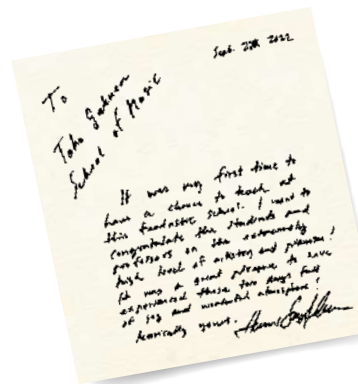 Sept. 27th 2022
To
Toho Gakuen
School of Music
It was my first time to
have a chance to teach at
this fantastic school. I want to
congratulate the students and
professors on the extremely
high level of artistry and
It was a great pleasure to have
experienced these two days full
of joy and wonderful atmosphere!
yours.